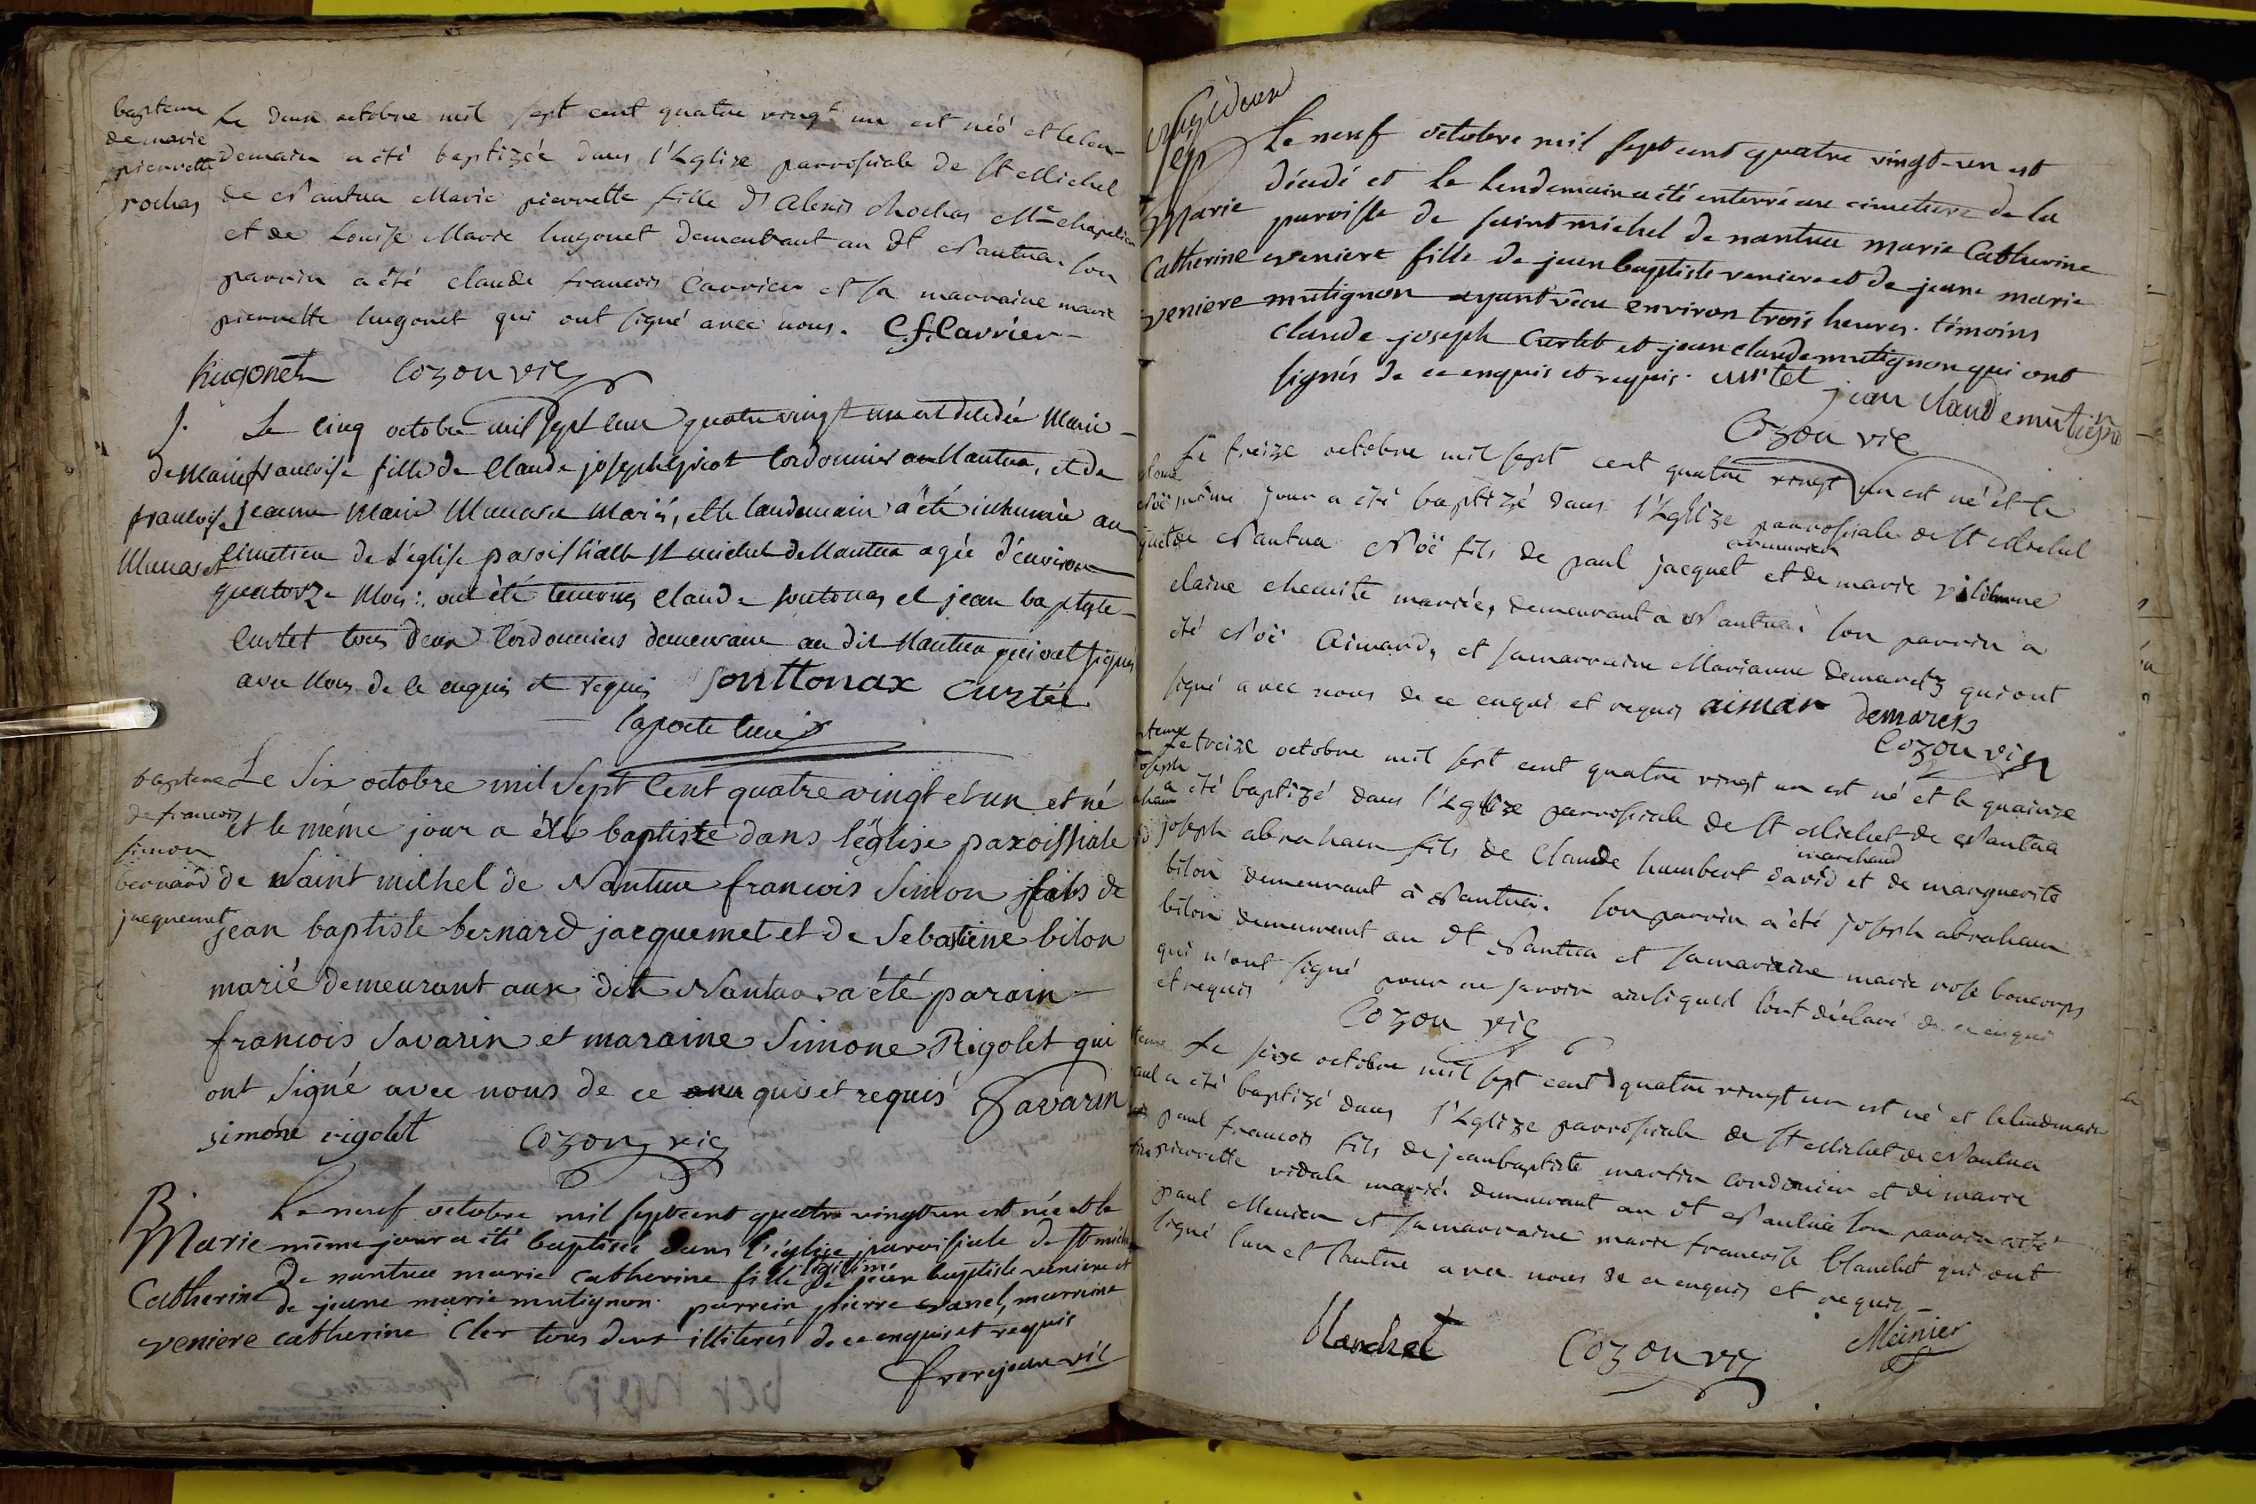 bapteme
de marie
pierrette
rochas
Le deux octobre mil sept cent quatre vingt un est née et le len-
demain a été baptizée dans l'Eglize parrossiale de St Michel
de Nantua Marie pierrette fille d'Alexis Rochas Me chapelier
et de Louise Marie hugonet demeurant au dt Nantua. son
parrin a été claude francois Carrier et sa marraine marie
pierrette hugonet qui ont signé avec nous. C.f. Carrier
hugonet Cozon vic
de Marie
francoise
Le cinq octobre mil sept cent quatre vingt un est décédée Marie
francoise fille de Claude joseph cordonnier au Nantua, et de
jeanne Marie mariés, et le landemain a été inhumée au
cimetiere de l'église paroissialle st michel de Nantua agée d'environ
quatorze Mois : ont été temoins Claude souttonas et jean baptiste
Curtet tous deux cordonniers demeurans au dit Nantua qui ont signés
avec Nous de ce enquis et requis Souttonax Curtet
Laporte curé
bapteme
de francois
simon
bernard
jacquemet
Le Six octobre mil Sept Cent quatre vingt et un et né
et le même jour a été baptiste dans l'église paroissiale
de Saint michel de Nantua francois Simon fils de
jean baptiste bernard jacquemet et de Sebastiene bilon
marié demeurant aux dit Nantua a été parain
francois Savarin et maraine Simone Rigolet qui
ont Signé avec nous de ce quis et requis Savarin
simone rigolet Cozon vic
B.
Marie
Catherine
veniere
Le neuf octobre mil sept cent quatre vingt un est née et le
même jour a été baptisée dans l'église paroissiale de St michel
de nantua marie catherine fille légitime de jean baptiste veniere et
de jeane marie mutignon. parrein pierre vanel, marreine
catherine Cler tous deux illiterés de ce enquis et requis
frerejean vic
Sep
Marie
Catherine
veniere
Le neuf octobre mil sept cent quatre vingt-un est
décédé et le lendemain a été enterré au cimetiere de la
paroisse de saint michel de nantua marie Catherine
veniere fille de jean baptiste veniere et de jeane marie
mutignon ayant vécu environ trois heures. témoins
claude joseph Curtet et jean claude mutignon qui ont
signés de ce enquis et requis. curtet
jean claude mutignon
Cozon vic
Le treize octobre mil sept cent quatre vingt un est né et le
même jour a été baptizé dans l'Eglize parrossiale de St Michel
de Nantua Noë fils de paul jacquet et de marie
claine chemite mariés, demeurant à Nantua. son parrin a
été Noë Aimard, et sa marraine Marianne demaretz qui ont
signé avec nous de ce enqui et requis aimar demarets
Cozon vic
Le treize octobre mil sept cent quatre vingt un est né et le quainze
a été baptizé dans l'Eglize parrossiale de St Michel de Nantua
joseph abraham fils de Claude humbert david marchand et de marguerite
bilon demeurant à Nantua. son parrin a été joseph abraham
bilon demeurant au dt Nantua et sa marraine marie rose boncorps
qui n'ont signé pour ne savoir ainsi quil l'ont déclaré de ce enqui
et requis
Cozon vic
Le seize octobre mil sept cent quatre vingt un est né et le lendemain
a été baptizé dans l'Eglize parrossiale de St Michel de Nantua
paul francois fils de jean baptiste martin cordonier et de marie
pierrette vidale mariés demeurant au dt Nantua son parrin a été
paul Meunier et sa marraine marie francoise blanchet qui ont
signé l'un et l'autre avec nous de ce enquis et requis
blanchet Cozon vic Meinier